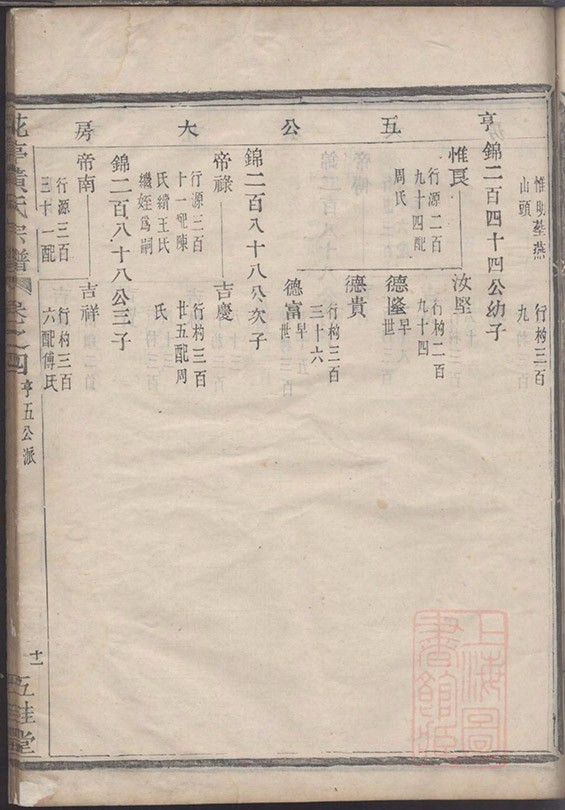 亨五公大房
惟明塟燕
山頭
行杓三百
九
錦二百四十四公幼子
惟良
行源二百
九十四配
周氏
汝堅
行杓二百
九十四
德隆早
世
德貴
行杓三百
三十六
德富早
世
錦二百八十八公次子
帝祿
行源三百
十一配陳
氏續王氏
繼姪爲嗣
吉慶
行杓三百
廿五配周
氏
錦二百八十八公三子
帝南
行源三百
三十一配
吉祥
行杓三百
六配傅氏
花亭黃氏宗譜
卷之四
亨五公派
十一
五桂堂
上海圖
書館藏